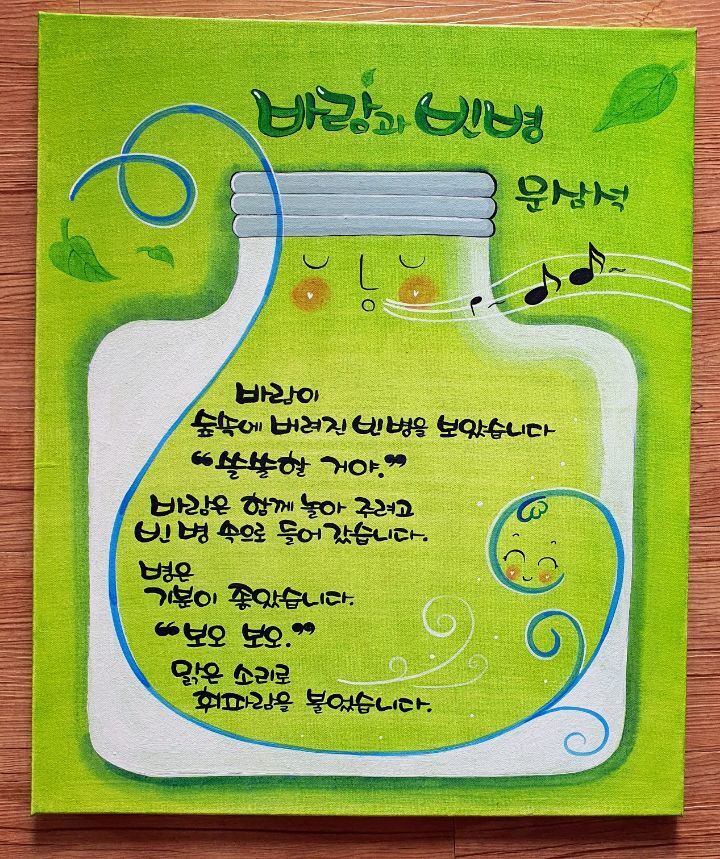 바람과 빈병
문삼석
바람이
숲속에 버려진 빈 병을 보았습니다
“쓸쓸할 거야.”
바람은 함께 놀아 주려고
빈 병 속으로 들어갔습니다.
병은
기분이 좋았습니다.
“보오 보오.”
맑은 소리로
휘파람을 불었습니다.